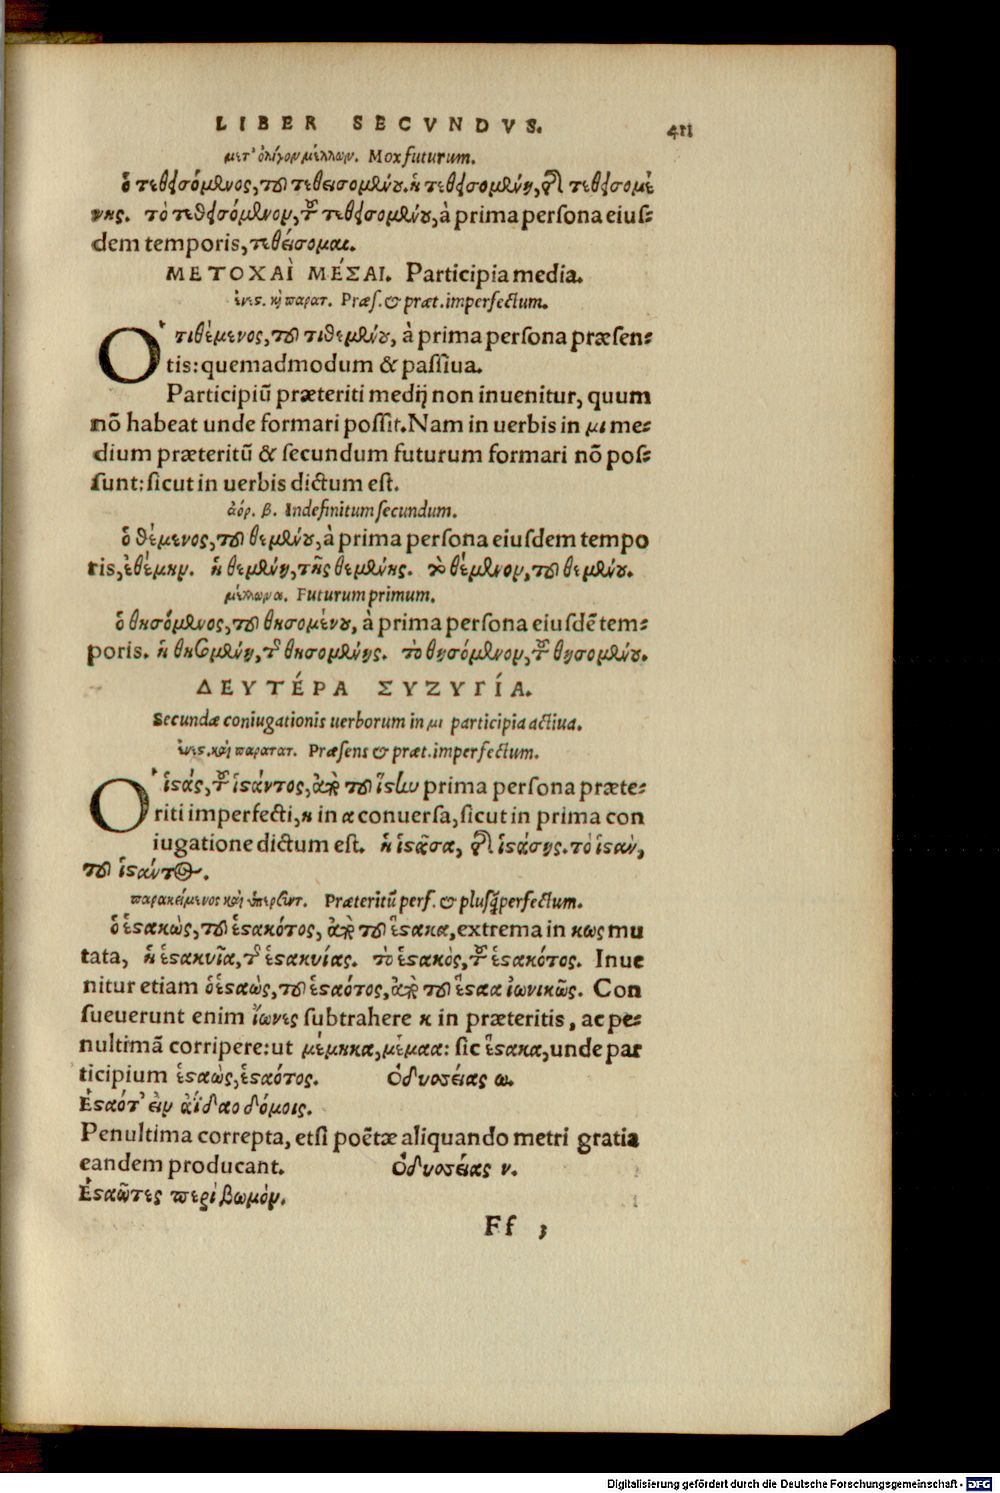 LIBER SECVNDVS. 411
μετ' ὀλίγον μέλλων. Mox futurum.
ὁ τεθεισόμενος, τοῦ τεθεισομένου. ἡ τεθεισομένη, τῆς τεθεισομέ
νης. τὸ τεθεισόμενον, τοῦ τεθεισομένου, à prima persona eius-
dem temporis, τεθείσομαι.
ΜΕΤΟΧΑῚ ΜΈΣΑΙ. Participia media.
ἐνες. καὶ παρατ. Præs. & præt. imperfectum.
Ὁ τιθέμενος, τοῦ τιθεμένου, à prima persona præsen-
tis: quemadmodum & passiua.
Participiū præteriti medij non inuenitur, quum
nō habeat unde formari possit. Nam in uerbis in μι me-
dium præteritū & secundum futurum formari nō pos-
sunt: sicut in uerbis dictum est.
ἀόρ. β. Indefinitum secundum.
ὁ θέμενος, τοῦ θεμένου, à prima persona eiusdem tempo
ris, ἐθέμην. ἡ θεμένη, τῆς θεμένης. τὸ θέμενον, τοῦ θεμένου.
μέλλων α. Futurum primum.
ὁ θησόμενος, τοῦ θησομένου, à prima persona eiusdē tem-
poris. ἡ θησομένη, τῆς θησομένης. τὸ θησόμενον, τοῦ θησομένου.
ΔΕΥΤΈΡΑ ΣΥΖΥΓΊΑ.
Secundæ coniugationis uerborum in μι participia actiua.
ἐνες. καὶ παρατατ. Præsens & præt. imperfectum.
Ὁ ἱςάς, τοῦ ἱςάντος, ἀπὸ τοῦ ἵςην prima persona præte-
riti imperfecti, η in α conuersa, sicut in prima con
iugatione dictum est. ἡ ἱςᾶσα, τῆς ἱςάσης. τὸ ἱςαν,
τοῦ ἱςάντος.
παρακείμενος καὶ ὑπερσυντ. Præteritū perf. & plusq̄perfectum.
ὁ ἑςακὼς, τοῦ ἑςακότος, ἀπὸ τοῦ ἕςακα, extrema in κως mu
tata, ἡ ἑςακυῖα, τῆς ἑςακυίας. τὸ ἑςακὸς, τοῦ ἑςακότος. Inue
nitur etiam ὁ ἑςαὼς, τοῦ ἑςαότος, ἀπὸ τοῦ ἕςαα ἰωνικῶς. Con
sueuerunt enim ἴωνες subtrahere κ in præteritis, ac pe-
nultimā corripere: ut μέμηκα, μέμαα: sic ἕςακα, unde par
ticipium ἑςαὼς, ἑςαότος. Ὀδυσσείας ω.
Ἑςαότ' εἰν ἀΐδαο δόμοις.
Penultima correpta, etsi poëtæ aliquando metri gratia
eandem producant. Ὀδυσσείας ν.
Ἑςαῶτες περὶ βωμόν.
Ff 3
Digitalisierung gefördert durch die Deutsche Forschungsgemeinschaft - DFG